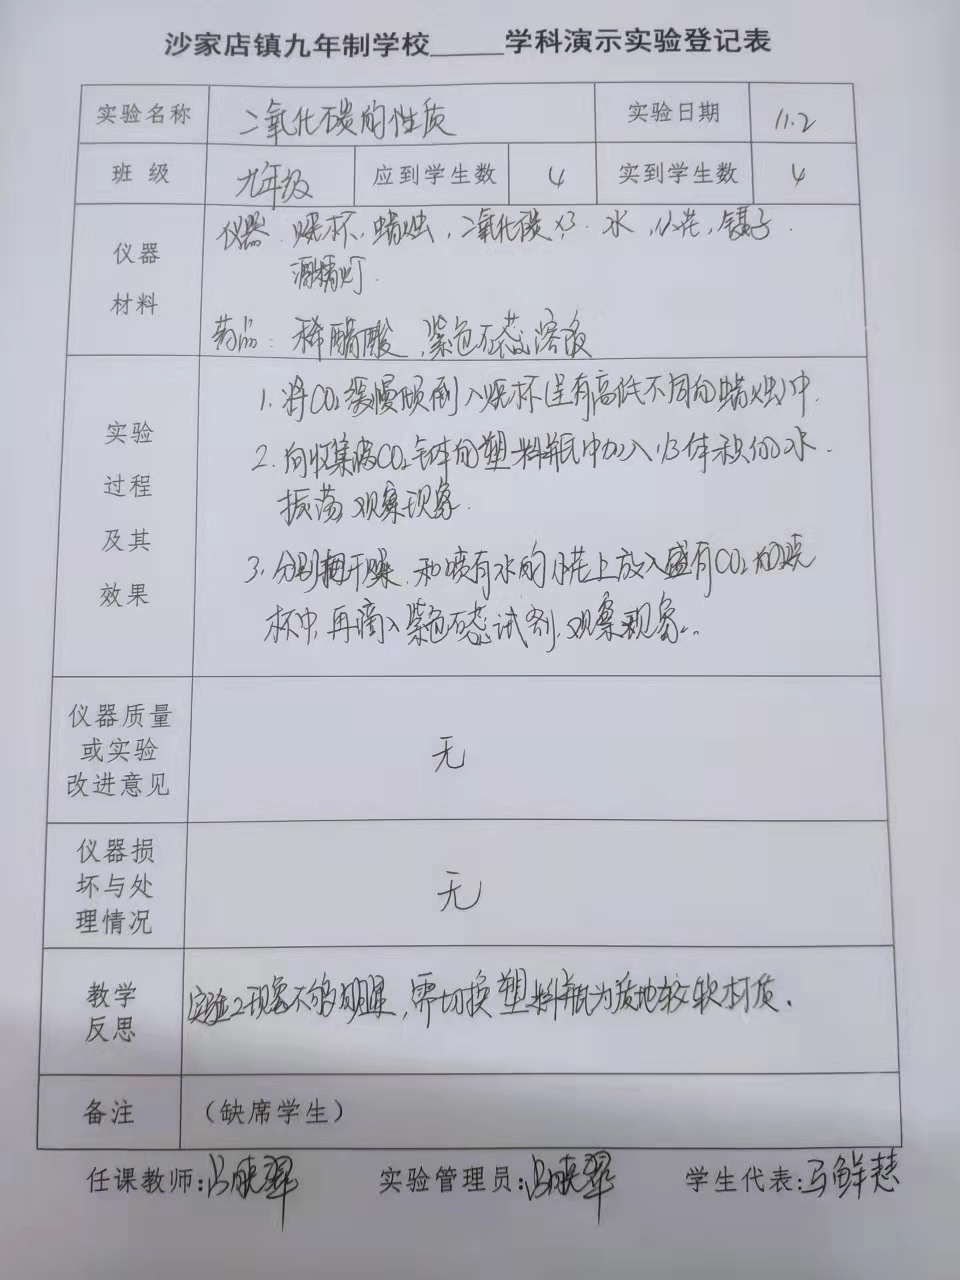 沙家店镇九年制学校_____学科演示实验登记表
实验名称 二氧化碳的性质 实验日期 11.2
班 级 九年级 应到学生数 4 实到学生数 4
仪器 材料
仪器: 烧杯, 蜡烛, 二氧化碳×3. 水, 小花, 镊子.
酒精灯.
药品: 稀醋酸, 紫色石蕊溶液
实验 过程 及其 效果
1. 将CO₂缓慢倾倒入烧杯(呈有高低不同的蜡烛)中.
2. 向收集满CO₂气体的塑料瓶中加入1/3体积的水.
振荡, 观察现象.
3. 分别把干燥、和喷有水的小花上放入盛有CO₂的烧
杯中, 再滴入紫色石蕊试剂, 观察现象.
仪器质量
或实验
改进意见
无
仪器损
坏与处
理情况
无
教学
反思
实验2现象不够明显, 需切换塑料瓶为质地较软材质.
备注 (缺席学生)
任课教师: 实验管理员: 学生代表:马鲜慧